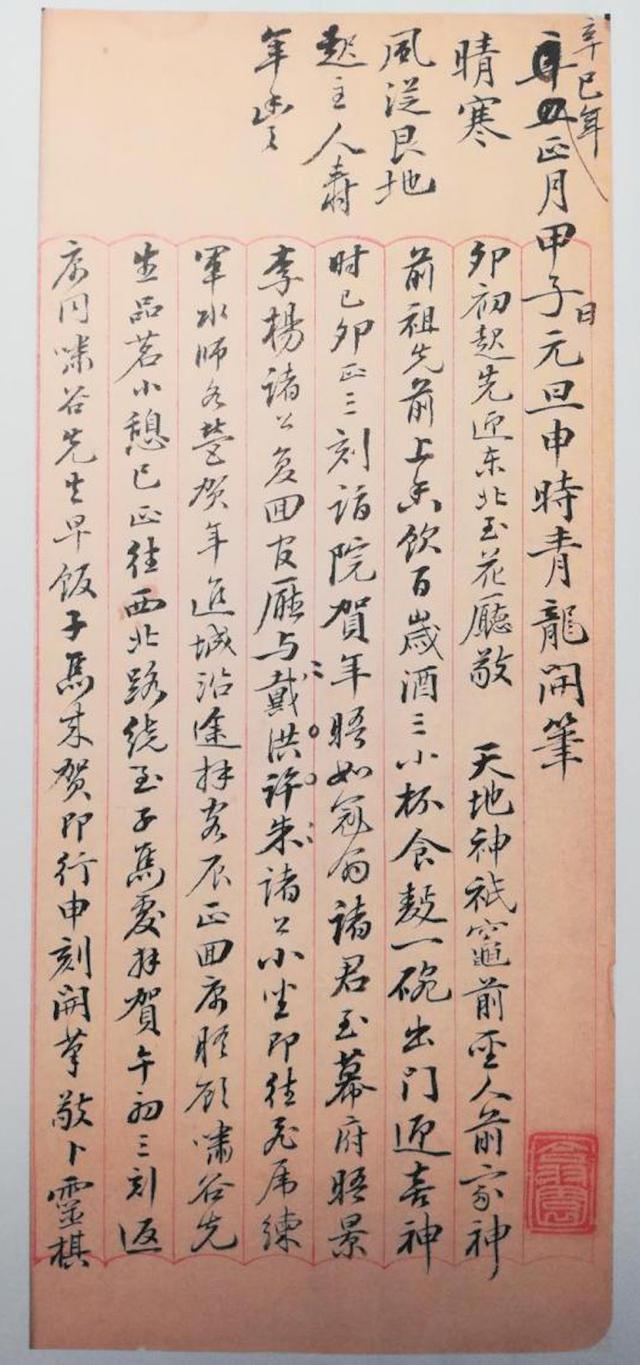 辛巳年
正月甲子日元旦申時青龍開筆
晴寒
風從艮地
起主人壽
年豐
卯初起先迎东北至花廳敬 天地神祇竈前聖人前家神
前祖先前上香飲百歲酒三小杯食麵一碗出門迎喜神
时已卯正三刻詣院賀年晤如冠翁諸君至幕府晤景
李楊諸公复回官厰与戴洪許朱諸公小坐即往飛虎練
軍水師各營賀年進城沿途拜客辰正回寓晤顧嘯谷先
生品茗小憩巳正往西北路绕至子馬處拜賀午初三刻返
寓同嘯谷先生早飯子馬來賀即行申刻開筆敬卜靈棋